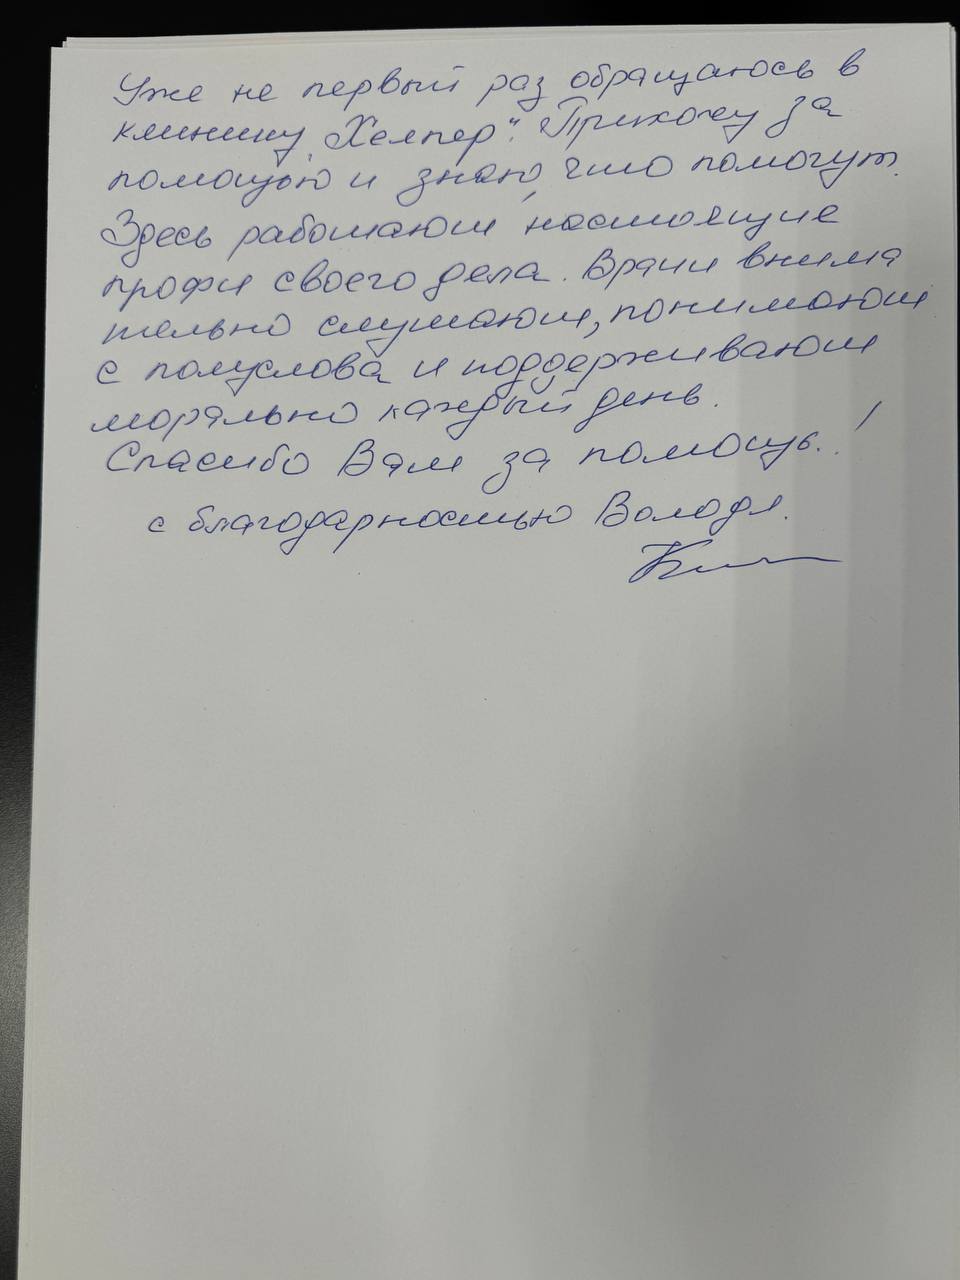 Уже не первый раз обращаюсь в
клинику „Хелпер“. Прихожу за
помощью и знаю, что помогут.
Здесь работают настоящие
профи своего дела. Врачи внима
тельно слушают, понимают
с полуслова и поддерживают
морально каждый день.
Спасибо Вам за помощь..!
с благодарностью Володя.